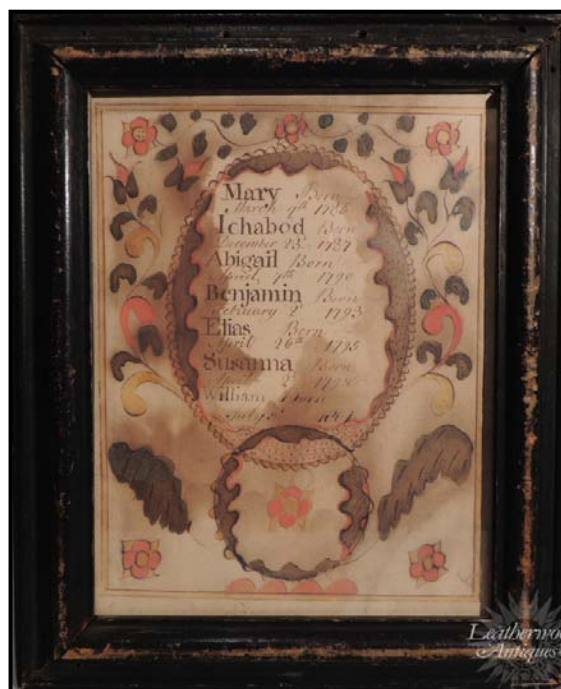 Mary Born
March 9th 1786
Ichabod Born
December 23d 1787
Abigail Born
April 7th 1790
Benjamin Born
February 2d 1793
Elias Born
April 26th 1795
Susanna Born
April 2d
William Born
July
Leatherwood
Antiques